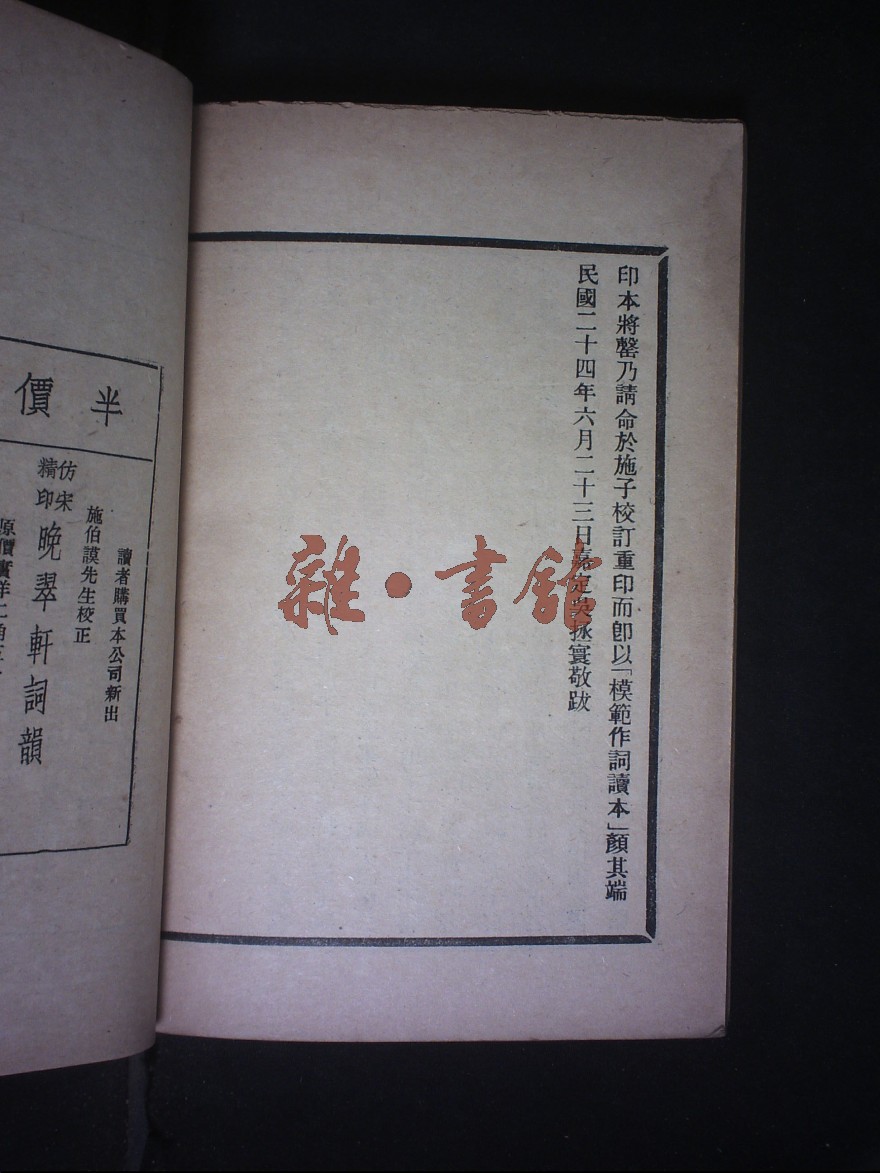 印本將罄乃請命於施子校訂重印而卽以「模範作詞讀本」顏其端
民國二十四年六月二十三日嘉定吳拯寰敬跋
雜·書館
半價
讀者購買本公司新出
施伯謨先生校正
仿宋精印晚翠軒詞韻
原價實洋二角五